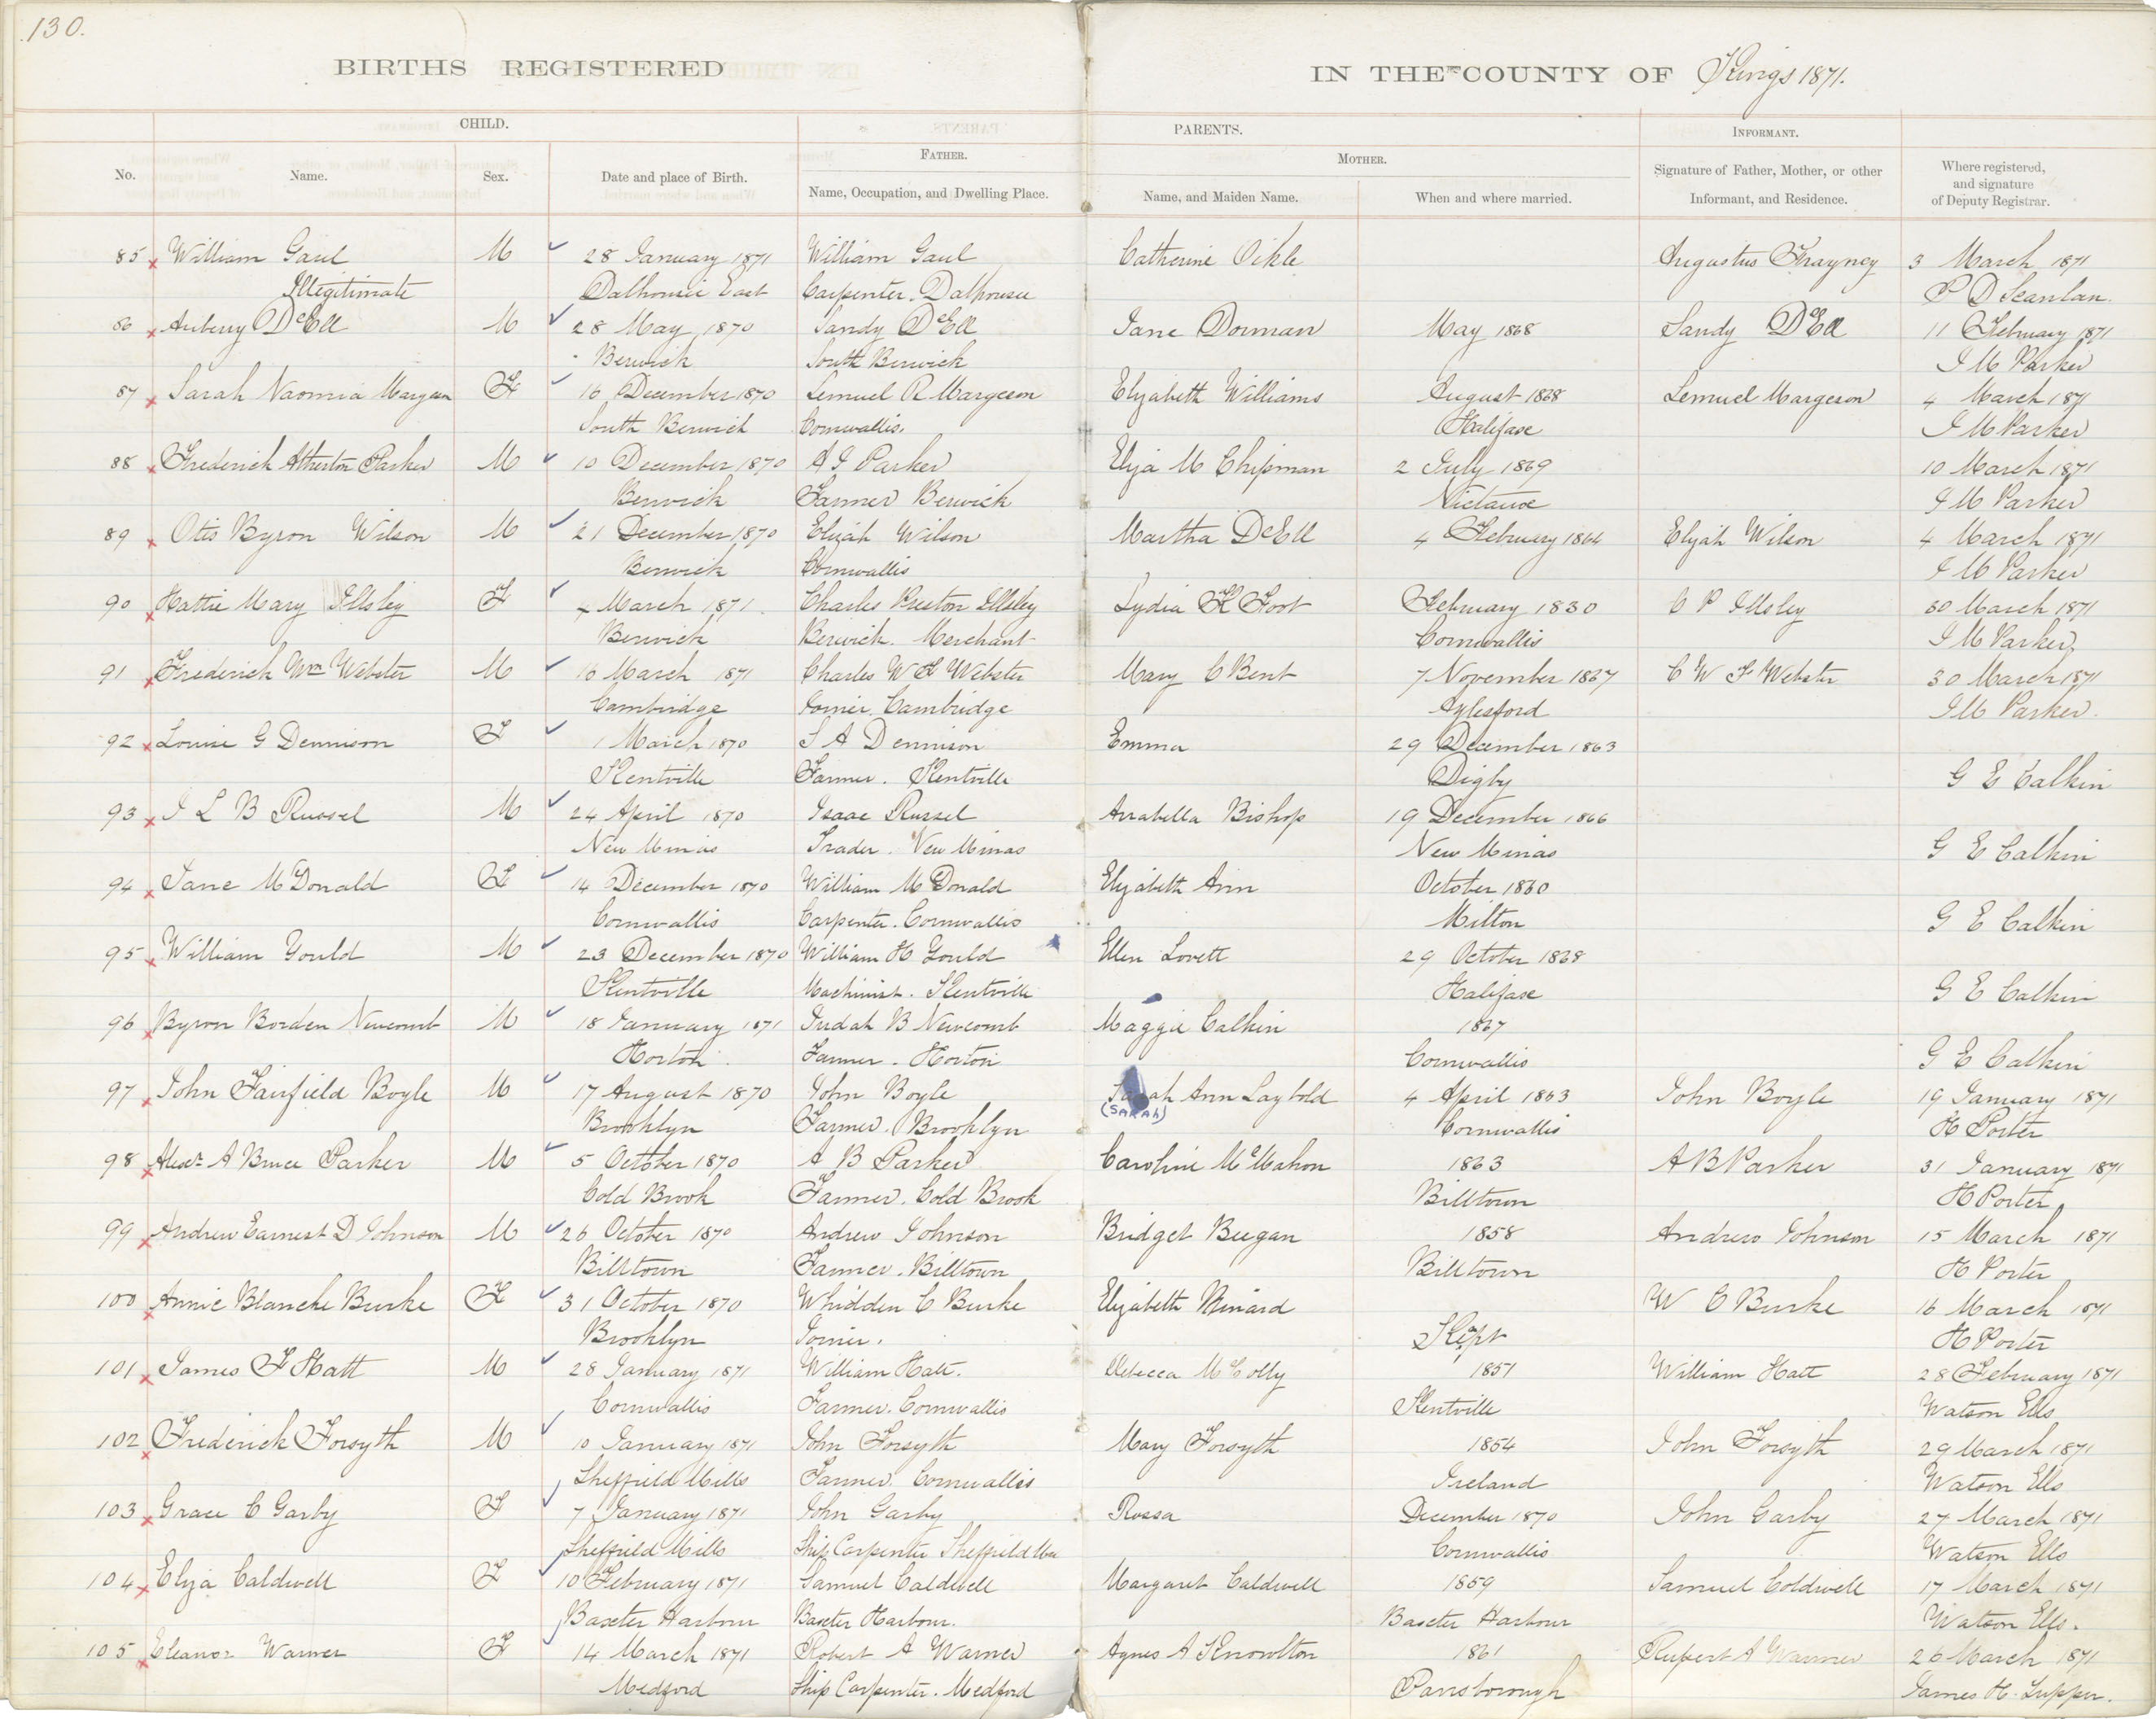 130.
BIRTHS REGISTERED IN THE COUNTY OF Kings 1871.
CHILD. PARENTS. INFORMANT.
FATHER. MOTHER.
No. Name. Sex. Date and place of Birth. Name, Occupation, and Dwelling Place. Name, and Maiden Name. When and where married. Signature of Father, Mother, or other Informant, and Residence. Where registered, and signature of Deputy Registrar.
85 William Gaul M 28 January 1871 William Gaul Catherine Oikle Augustus 3 March 1871
Illegitimate Dalhousie East Carpenter. Dalhousie P D Scanlan.
86 Auberry DeEll M 28 May 1870 Sandy DeEll Jane Dorman May 1868 Sandy DeEll 11 February 1871
Berwick South Berwick J M Parker
87 Sarah Naomia Margeson F 16 December 1870 Lemuel R Margeson Elizabeth Williams August 1868 Lemuel Margeson 4 March 1871
South Berwick Cornwallis. Halifax J M Parker
88 Frederick Atherton Parker M 10 December 1870 A J Parker Eliza M Chipman 2 July 1869 10 March 1871
Berwick Farmer Berwick Nictaux J M Parker
89 Otis Byron Wilson M 21 December 1870 Elijah Wilson Martha DeEll 4 February 1864 Elijah Wilson 4 March 1871
Berwick Cornwallis J M Parker
90 Hattie Mary Illsley F 4 March 1871. Charles Preston Illsley Lydia H Foot February 1830 C P Illsley 30 March 1871
Berwick Berwick. Merchant Cornwallis J M Parker
91 Frederick Wm Webster M 16 March 1871 Charles W F Webster Mary C Bent 7 November 1867 C W F Webster 30 March 1871
Cambridge Joiner. Cambridge Aylesford J M Parker.
92 Louise G Dennison F 1 March 1870 S A Dennison Emma 29 December 1863
Kentville Farmer. Kentville Digby G E Calkin
93 J L B Russel M 24 April 1870 Isaac Russel Arrabella Bishop 19 December 1866
New Minas Trader. New Minas New Minas G E Calkin
94 Jane McDonald F 14 December 1870 William McDonald Elizabeth Ann October 1860
Cornwallis Carpenter. Cornwallis Milton G E Calkin
95 William Gould M 23 December 1870 William H Gould Ellen Lovett 29 October 1868
Kentville Machinist. Kentville Halifax G E Calkin
96 Byron Borden Newcomb M 18 January 1871 Judah B Newcomb Maggie Calkin 1867
Horton. Farmer. Horton Cornwallis G E Calkin
97 John Fairfield Boyle M 17 August 1870 John Boyle Sarah Ann Laybold 4 April 1863 John Boyle 19 January 1871
Brooklyn Farmer. Brooklyn (SARAh) Cornwallis H Porter
98 Alexr A Bruce Parker M 5 October 1870 A B Parker Caroline McMahon 1863 A B Parker 31 January 1871
Cold Brook Farmer. Cold Brook Billtown H Porter
99 Andrew Earnest D Johnson M 26 October 1870 Andrew Johnson Bridget Beegan 1858 Andrew Johnson 15 March 1871
Billtown Farmer. Billtown Billtown H Porter
100 Annie Blanche Burke F 31 October 1870 Whidden C Burke Elizabeth Minard W C Burke 16 March 1871
Brooklyn Joiner. Kept H Porter
101 James F Hatt M 28 January 1871 William Hatt. Rebecca McColly 1857 William Hatt 28 February 1871
Cornwallis Farmer. Cornwallis Kentville Watson Ells
102 Frederick Forsyth M 10 January 1871 John Forsyth Mary Forsyth 1854 John Forsyth 29 March 1871
Sheffield Mills Farmer. Cornwallis Ireland Watson Ells
103 Grace C Garby F 7 January 1871 John Garby Rossa December 1870 John Garby 27 March 1871
Sheffield Mills Ship Carpenter Sheffield Cornwallis Watson Ells
104 Eliza Caldwell F 10 February 1871 Samuel Caldwell Margaret Caldwell 1859 Samuel Coldwell 17 March 1871
Baxter Harbour Baxter Harbour. Baxter Harbour Watson Ells.
105 Eleanor Warner F 14 March 1871 Robert A Warner Agnes A Knowlton 1861 Rupert A Warner 26 March 1871
Medford Ship Carpenter. Medford Parrsborough James H. Tupper.